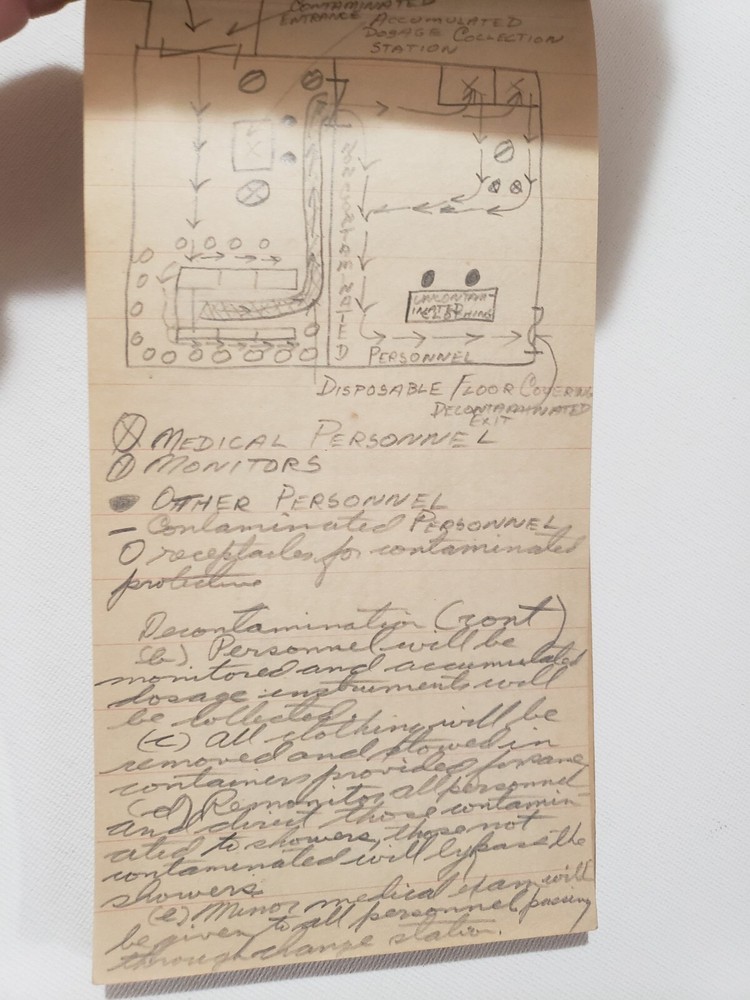 CONTAMINATED
ENTRANCE
ACCUMULATED
DOSAGE COLLECTION
STATION
NONCONTAMINATED
UNCONTAM-
INATED
CLOTHING
PERSONNEL
DISPOSABLE FLOOR COVERING
DECONTAMINATED
EXIT
MEDICAL PERSONNEL
MONITORS
OTHER PERSONNEL
— Contaminated PERSONNEL
O receptacles for contaminated
protective
Decontamination (cont)
(b) Personnel will be
monitored and accumulated
dosage instruments will
be collected.
(c) All clothing will be
removed and stowed in
containers provided for same
(d) Remonitor all personnel
and direct those contamin-
ated to showers, those not
contaminated will bypass the
showers.
(e) Minor medical exam will
be given to all personnel passing
through change station.